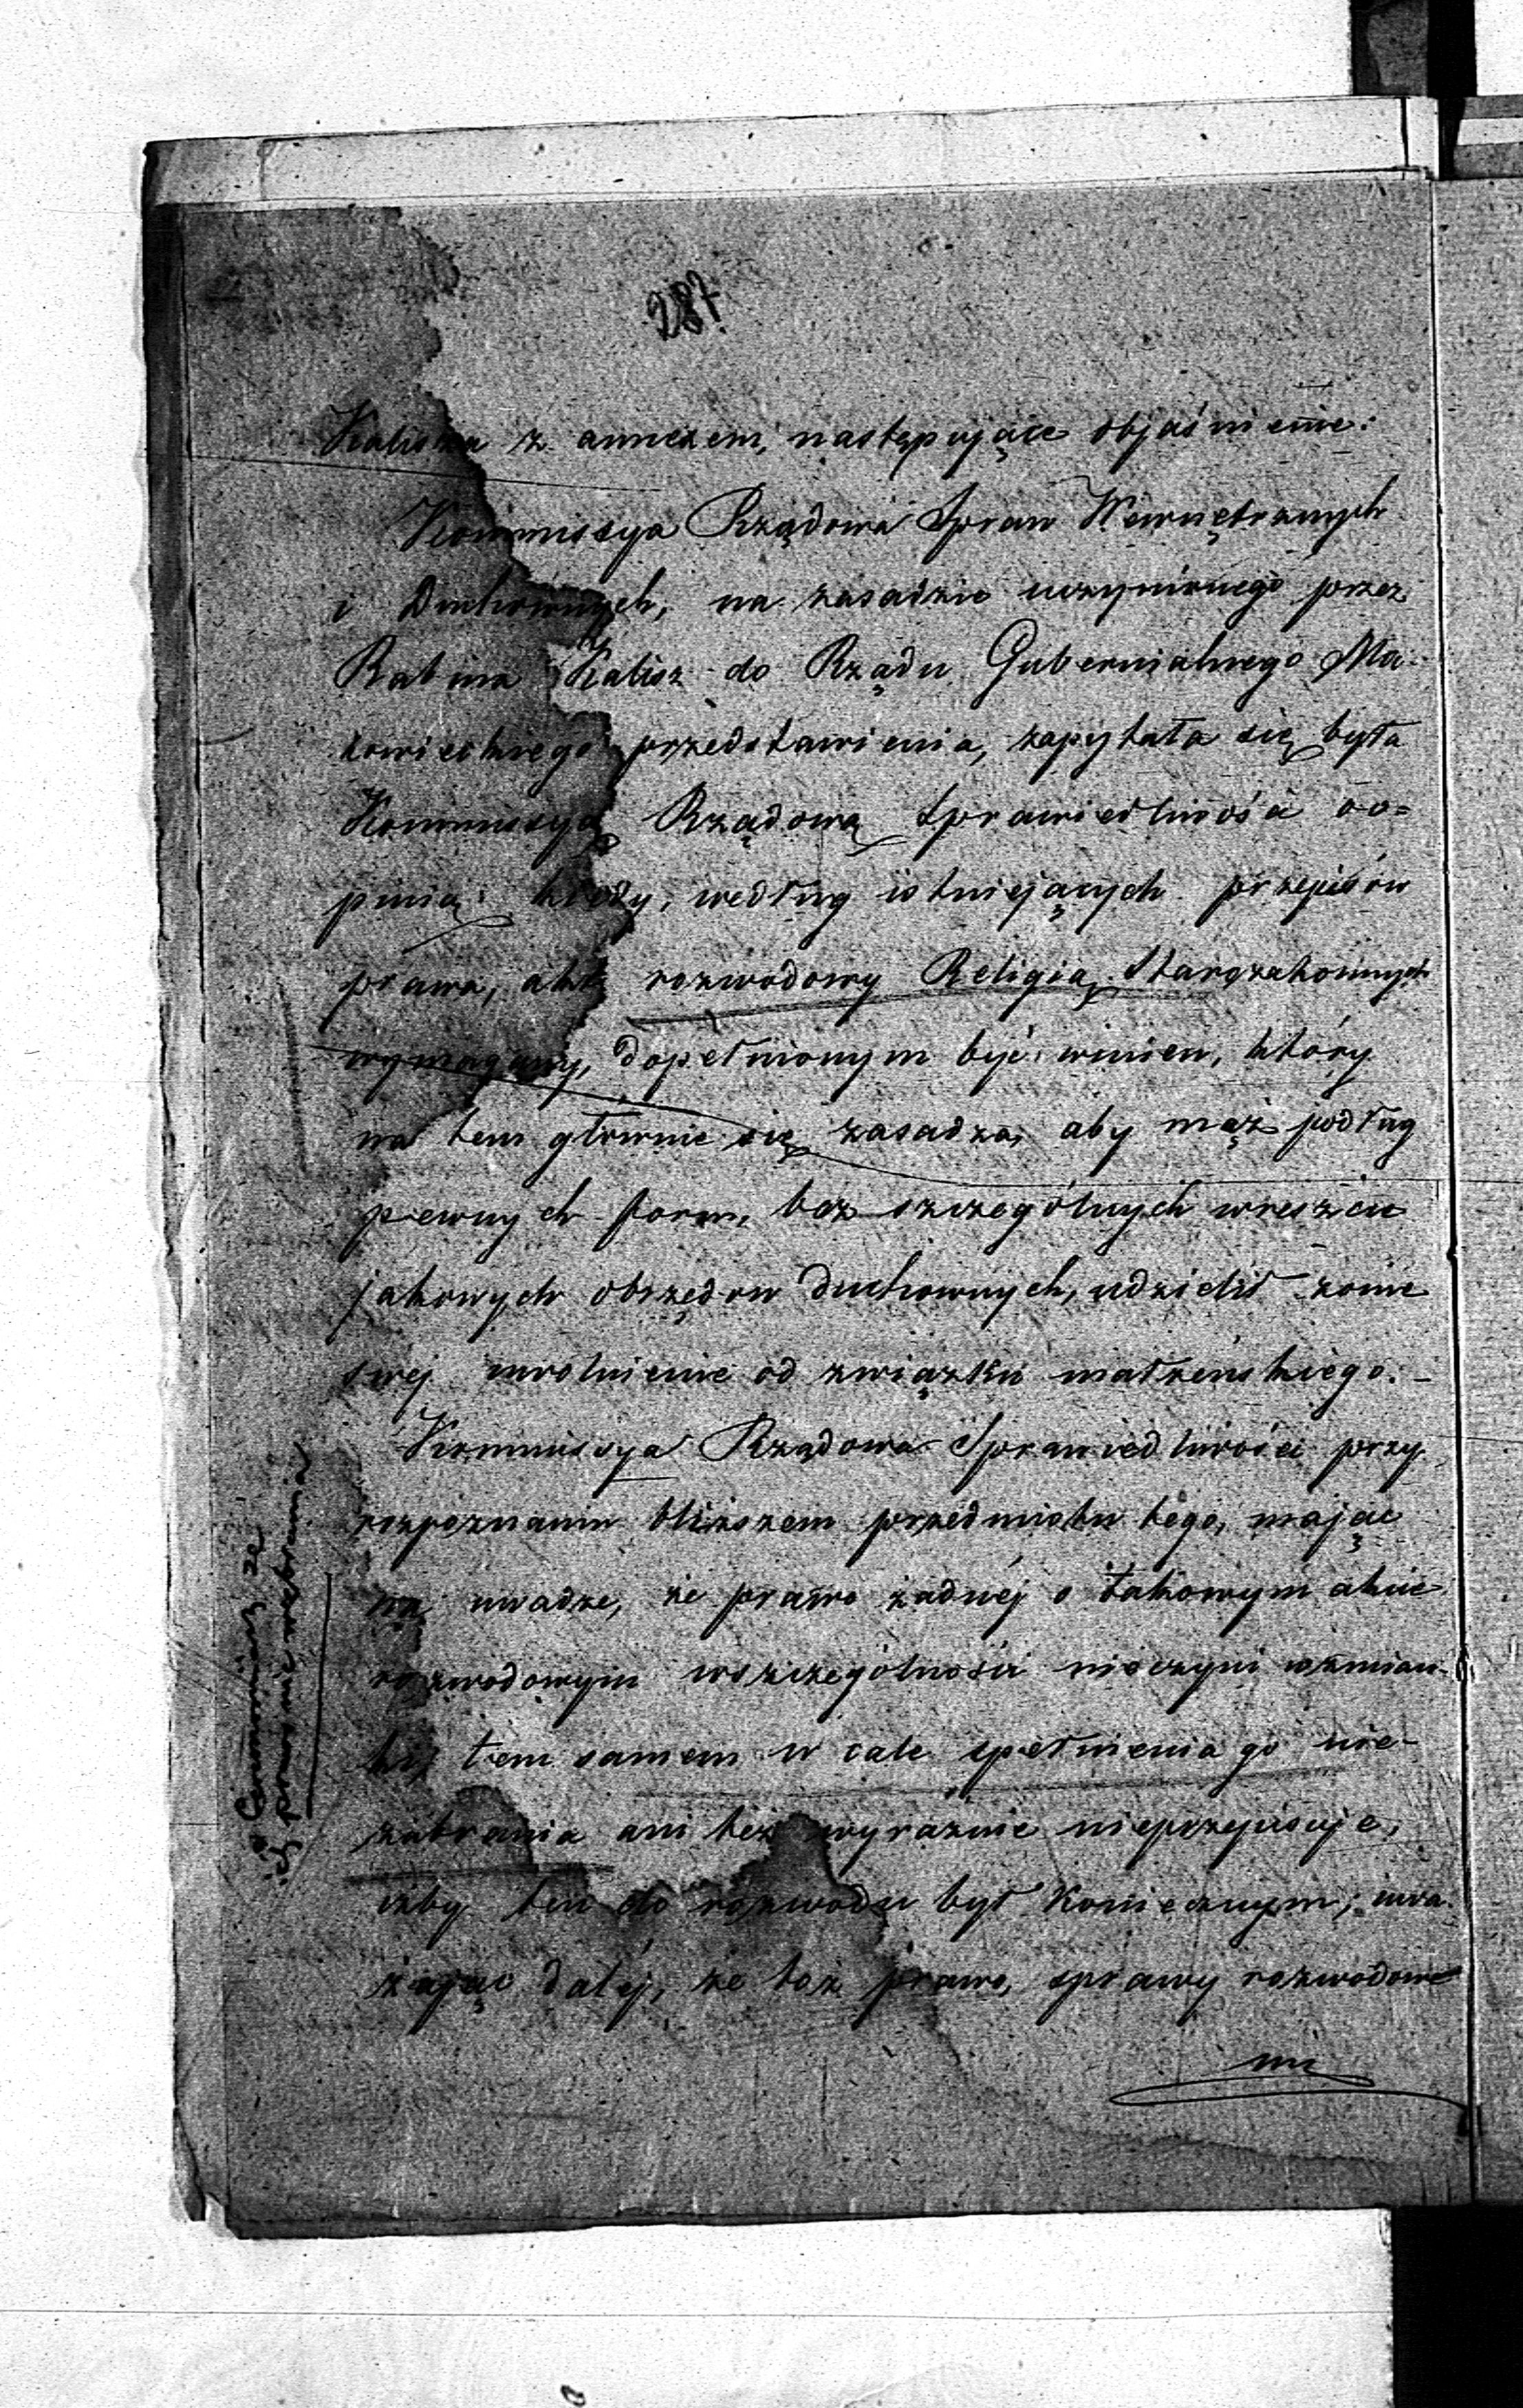 287
Kalisza z annexem, następujące objaśnienie:
Kommissya Rządowa Spraw Wewnętrznych
i Duchownych, na zasadzie uczynionego przez
Rabina Kalisz do Rządu Gubernialnego Ma-
zowieckiego przedstawienia, zapytała się była
Kommissyą Rządową Sprawiedliwości o o=
pinią: kiedy, według istniejących przepisów
prawa, akt rozwodowy Religią Starozakonnych
wymagany, dopełnionym być winien, który
na tem głównie się zasadza, aby mąż podług
pewnych form, bez szczególnych wreszcie
jakowych obrzędów duchownych, udzielił żonie
swej uwolnienie od związku małżeńskiego. –
Kommissya Rządowa Sprawiedliwości przy
rozpoznaniu bliższem przedmiotu tego, mając
na uwadze, że prawo żadnéj o takowym akcie
rozwodowym wszczególności nieczyni wzmian-
ki, tem samem w cale spełnienia go nie-
zabrania ani też wyraźnie nieprzepisuje,
iżby ten do rozwodu był koniecznym; uwa-
żając daléj, że toż prawo, sprawy rozwodowe
że
prawo nie zabrania